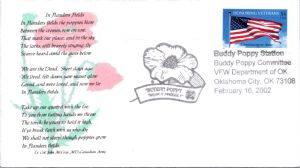 In Flanders Fields
In Flanders fields the poppies blow
Between the crosses, row on row
That mark our place; and in the sky
The larks, still bravely singing, fly
Scarce heard amid the guns below
We are the Dead. Short days ago
We lived, felt dawn, saw sunset glow
Loved, and were loved, and now we lie
In Flanders fields
Take up our quarrel with the foe
To you from failing hands we throw
The torch; be yours to hold it high
If ye break faith with us who die
We shall not sleep, though poppies grow
In Flanders fields
Lt. Col. John McCrae, MD Canadian Army
HONORING VETERANS
BUDDY POPPY
Buddy Poppy Station
Buddy Poppy Committee
VFW Department of OK
Oklahoma City, OK 73108
February 16, 2002